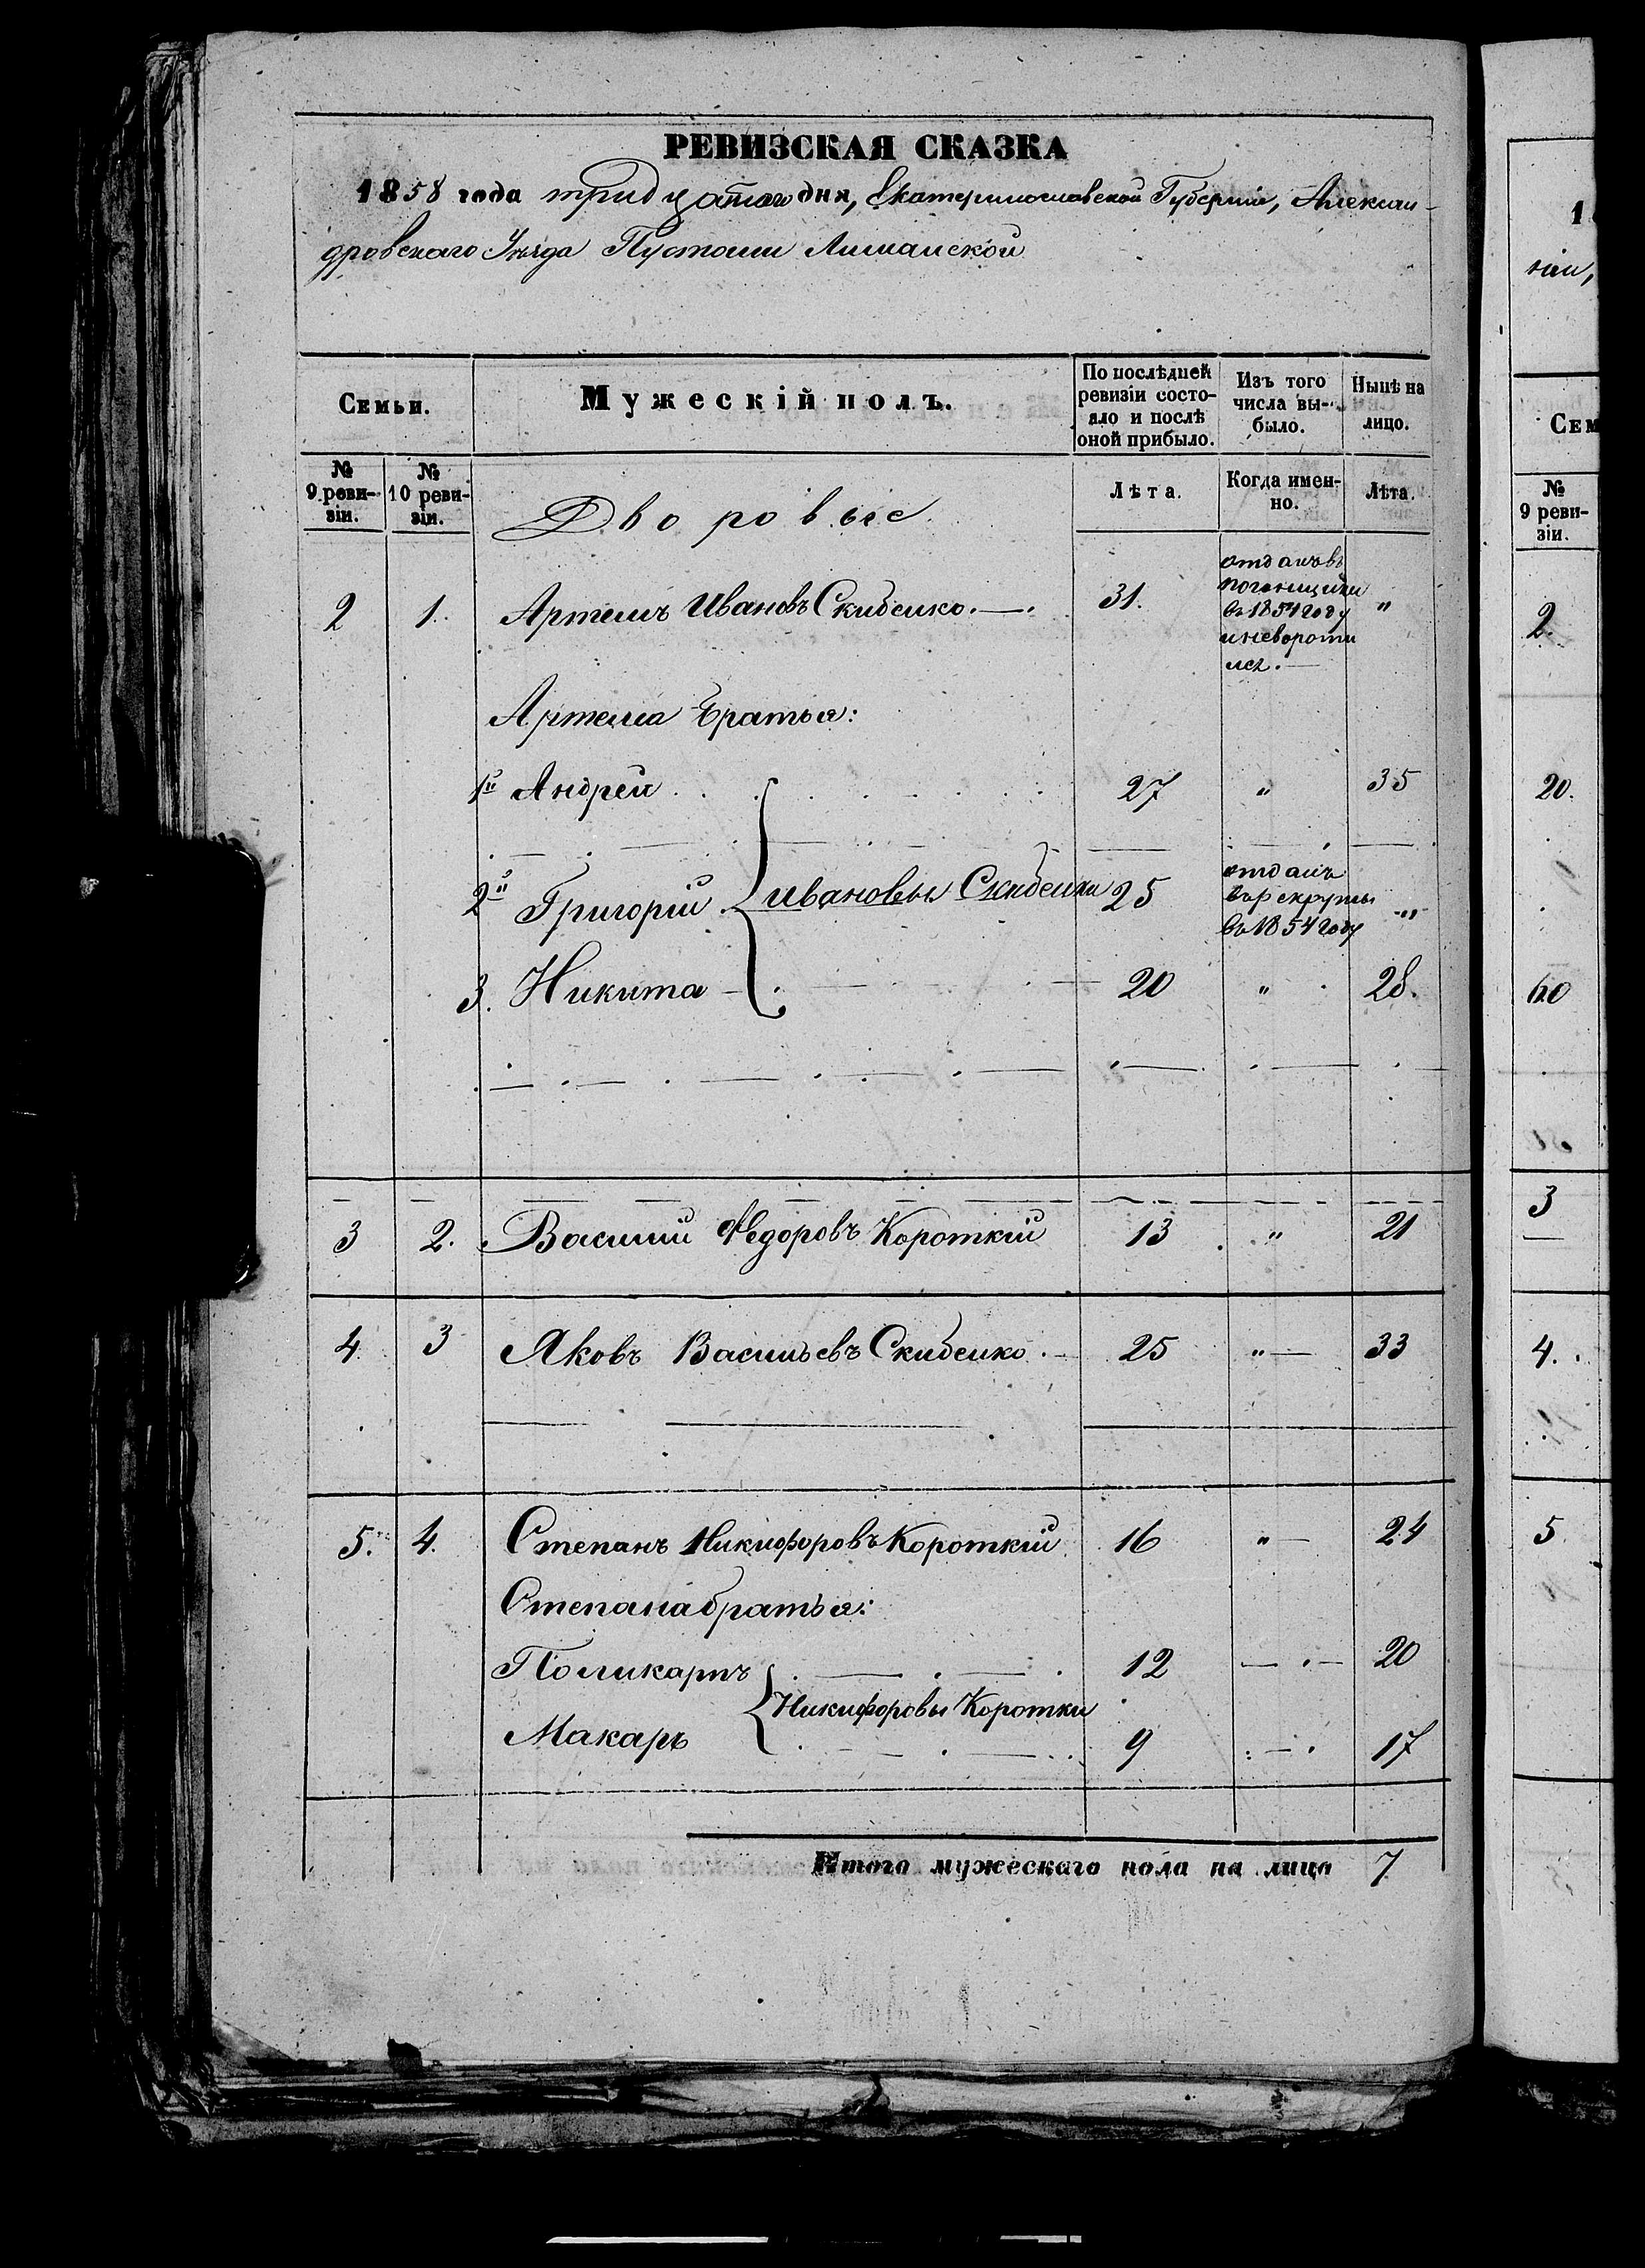 РЕВИЗСКАЯ СКАЗКА
1858 года тридцатого дня, Екатеринославской Губерніи, Алексан-
дровскаго Уѣзда Пустоши Лиманской
Семьи.
Мужескій полъ.
По послѣдней ревизіи состо-
яло и послѣ
оной прибыло.
Изъ того
числа вы-
было.
Нынѣ на
лицо.
№
9 реви-
зіи.
№
10 реви-
зіи.
Дворовые
Лѣта.
Когда имен-
но.
Лѣта.
2 1. Артемъ Ивановъ Скибенко. 31. отданъ въ
погонщики
въ 1854 году
и невороти
лся. "
Артема братья:
1й Андрей 27 " 35
2й Григорій Ивановы Скибенки 25 отданъ
въ рекруты
въ 1854 году "
3. Никита 20 " 28.
3 2. Василий Федоровъ Короткій 13 " 21
4. 3 Яковъ Васильевъ Скибенко. 25 " 33
5. 4. Степанъ Никифоровъ Короткій 16 " 24
Степана братья:
Поликарпъ 12 20
Никифоровы Коротки
Макаръ 9 17
Итого мужескаго пола на лицо 7
1
ніи,
Сем
№
9 реви-
зіи.
2.
20.
60
3
4.
5